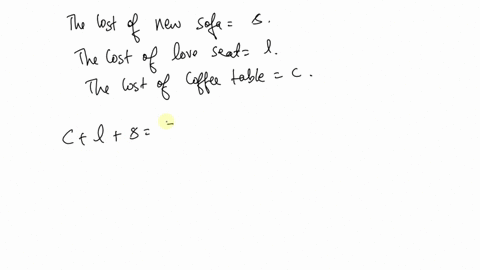 The Cost of new sofa = s.
The Cost of love seat = l.
The Cost of Coffee table = c.
C + l + s = =